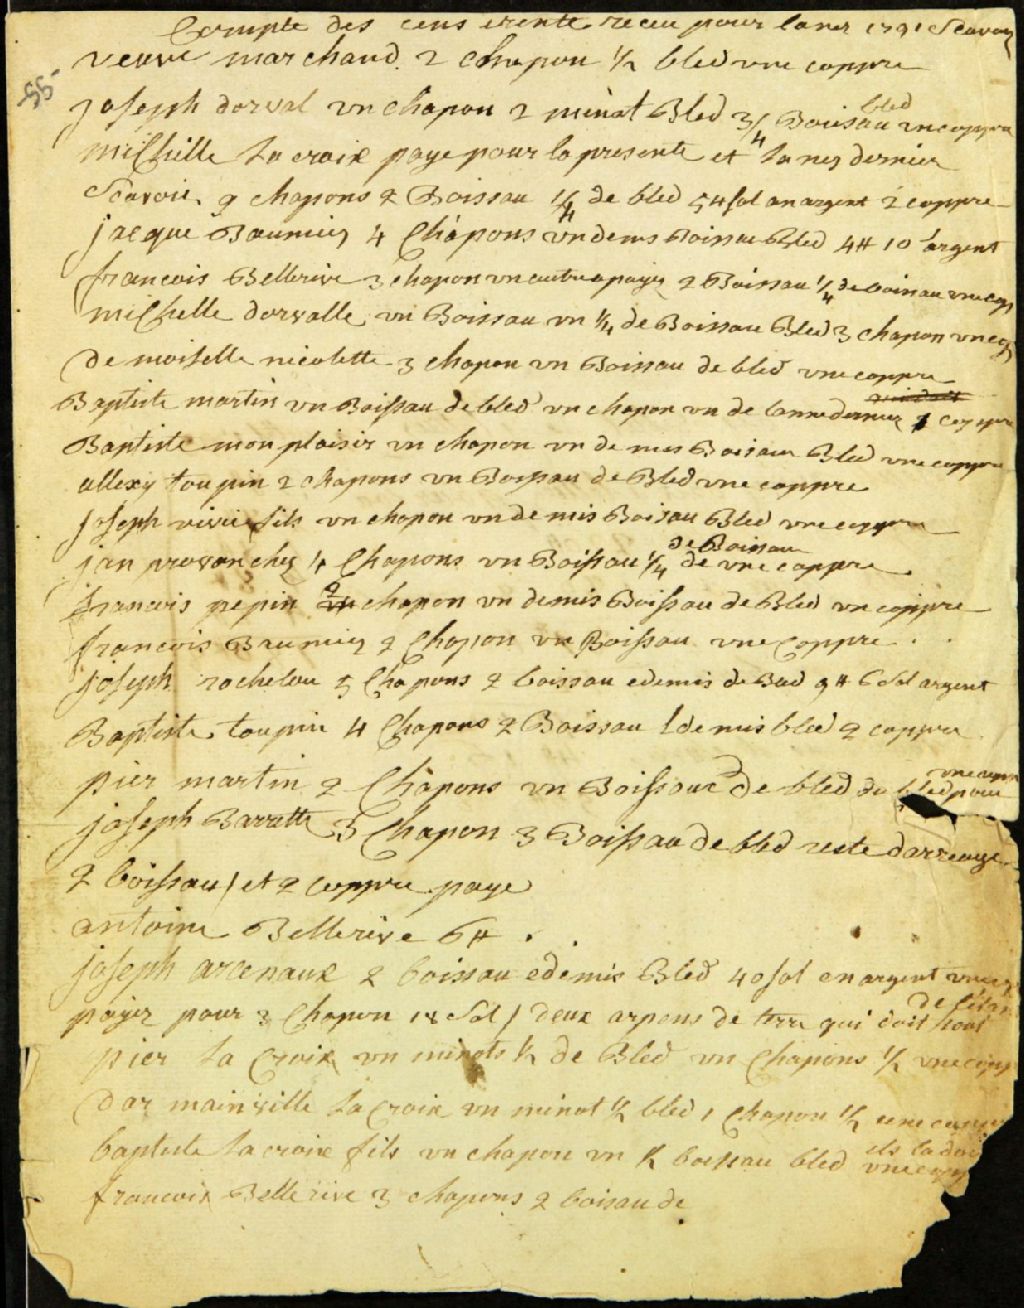 Compte des cens erente receu pour lanes 1791 Scavoir
veuve marchand 2 chapon ½ bled une coppre
55
joseph dorval un chapon 2 minot Bled 3/4 Boissau bled une coppre
miChelle La croix paye pour la presente et Lanes dernier
Scavoir 9 chapons 2 Boissau ¼ de bled 54 sol an argent 2 coppre
jacque Baumier 4 Chapons un demis Boissau Bled 4# 10 argent
francois Bellerive 3 chapon un autre a payer 2 Boissau ¼ de boisau une cop
miChelle dorvalle un Boissau un ¼ de Boissau Bled 3 chapon un cop
De moiselle nicolette 3 chapon un Boissau de bled une coppre
Baptiste martin un Boissau de bled un chapon un de lanne dernier 1 coppre
Baptiste mon plaisir un chapon un de mis Boisau Bled une coppre
allexy toupin 2 chapons un Boissau de Bled une coppre
joseph vivie fils un chapon un de mis Boisau Bled une coppre
jan provanches 4 Chapons un Boissau ¼ de Boissau de une coppre
francois pepin 2 chapon un demis Boissau de Bled un coppre
francois Baumier 2 Chapon un Boissau une Coppre
joseph rochelau 5 Chapons 2 boissau edemis de Bled 9# 6 sol argent
Baptiste toupin 4 Chapons 2 Boissau 1 demis bled 2 coppre
pier martin 2 Chapons un Boissau de bled du bled pour une coppre
joseph Barrette 3 Chapon 3 Boissau de bled reste darrerage
2 boissau / et 2 coppre paye
antoine Bellerive 6#
joseph arcenaux 2 boissau edemis Bled 40 sol en argent une cop
payer pour 3 Chapon 18 Sol / deux arpens de terre qui doit hout de létan
pier La Croix un minots ½ de Bled un Chapons ½ une copp
Dar mainville La Croix un minot ½ bled 1 Chapon ½ une coppre
baptiste La croix fils un chapon un ½ boissau bled une copp ils la doi
francoix Bellerive 3 chapons 2 boisau de